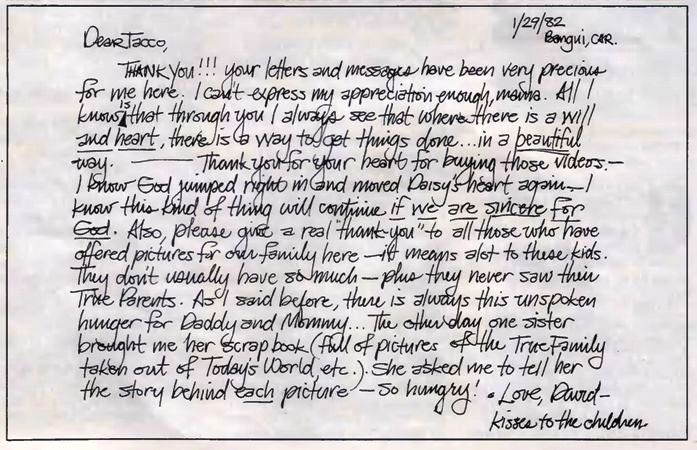 1/29/82
Bangui, CAR.
Dear Tacco,
THANK YOU!!! your letters and messages have been very precious
for me here. I can't express my appreciation enough, mama. All I
know is that through you I always see that where there is a will
and heart, there is a way to get things done... in a beautiful
way. —— Thank you for your heart for buying those videos.—
I know God jumped right in and moved Daisy's heart again — I
know this kind of thing will continue if we are sincere for
God. Also, please give a real "thank-you" to all those who have
offered pictures for our family here — it means alot to these kids.
They don't usually have so much — plus they never saw their
True Parents. As I said before, there is always this unspoken
hunger for Daddy and Mommy... The other day one sister
brought me her scrap book (full of pictures of the True Family
taken out of Today's World, etc.). She asked me to tell her
the story behind each picture — so hungry! • Love, David—
kisses to the children